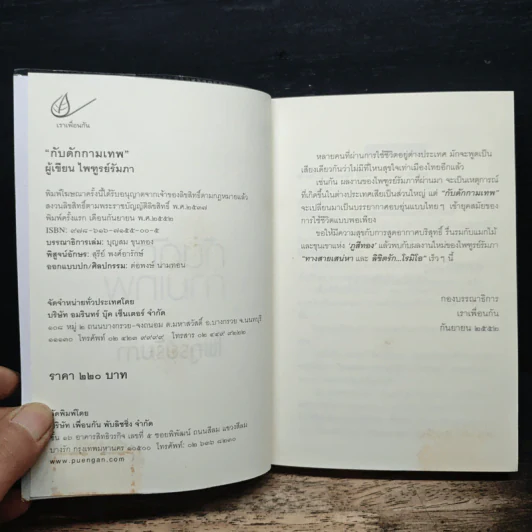 เราเพื่อนกัน
"กับดักกามเทพ"
ผู้เขียน ไพฑูรย์รัมภา
พิมพ์โฆษณาครั้งนี้ได้รับอนุญาตจากเจ้าของลิขสิทธิ์ตามกฎหมายแล้ว
สงวนลิขสิทธิ์ตามพระราชบัญญัติลิขสิทธิ์ พ.ศ.๒๕๓๗
พิมพ์ครั้งแรก เดือนกันยายน พ.ศ.๒๕๕๒
ISBN: ๙๗๘-๖๑๖-๗๑๕๕-๐๐-๕
บรรณาธิการเล่ม: บุญสม ขุนทอง
พิสูจน์อักษร: สุรีย์ พงศ์อารักษ์
ออกแบบปก/ศิลปกรรม: ต่อพงษ์ นามทอน
จัดจำหน่ายทั่วประเทศโดย
บริษัท อมรินทร์ บุ๊ค เซ็นเตอร์ จำกัด
๑๐๘ หมู่ ๒ ถนนบางกรวย-จงถนอม ต.มหาสวัสดิ์ อ.บางกรวย จ.นนทบุรี
๑๑๑๓๐ โทรศัพท์ ๐๒ ๔๒๓ ๙๙๙๙ โทรสาร ๐๒ ๔๔๙ ๙๒๒๒
ราคา ๒๒๐ บาท
จัดพิมพ์โดย
บริษัท เพื่อนกัน พับลิชชิ่ง จำกัด
ชั้น ๑๖ อาคารสิทธิวรกิจ เลขที่ ๕ ซอยพิพัฒน์ ถนนสีลม แขวงสีลม
บางรัก กรุงเทพมหานคร ๑๐๕๐๐ โทรศัพท์: ๐๒
www.puengan.com
หลายคนที่ผ่านการใช้ชีวิตอยู่ต่างประเทศ มักจะพูดเป็น
เสียงเดียวกันว่าไม่มีที่ไหนสุขใจเท่าเมืองไทยอีกแล้ว
เช่นกัน ผลงานของไพฑูรย์รัมภาที่ผ่านมา จะเป็นเหตุการณ์
ที่เกิดขึ้นในต่างประเทศเสียเป็นส่วนใหญ่ แต่ "กับดักกามเทพ"
จะเปลี่ยนมาเป็นบรรยากาศอบอุ่นแบบไทยๆ เข้ายุคสมัยของ
การใช้ชีวิตแบบพอเพียง
ขอให้มีความสุขกับการสูดอากาศบริสุทธิ์ รื่นรมย์กับแมกไม้
และขุนเขาแห่ง 'ภูสีทอง' แล้วพบกับผลงานใหม่ของไพฑูรย์รัมภา
"ทางสายเสน่หา และ ลิขิตรัก...โรมิโอ" เร็วๆ นี้
กองบรรณาธิการ
เราเพื่อนกัน
กันยายน ๒๕๕๒